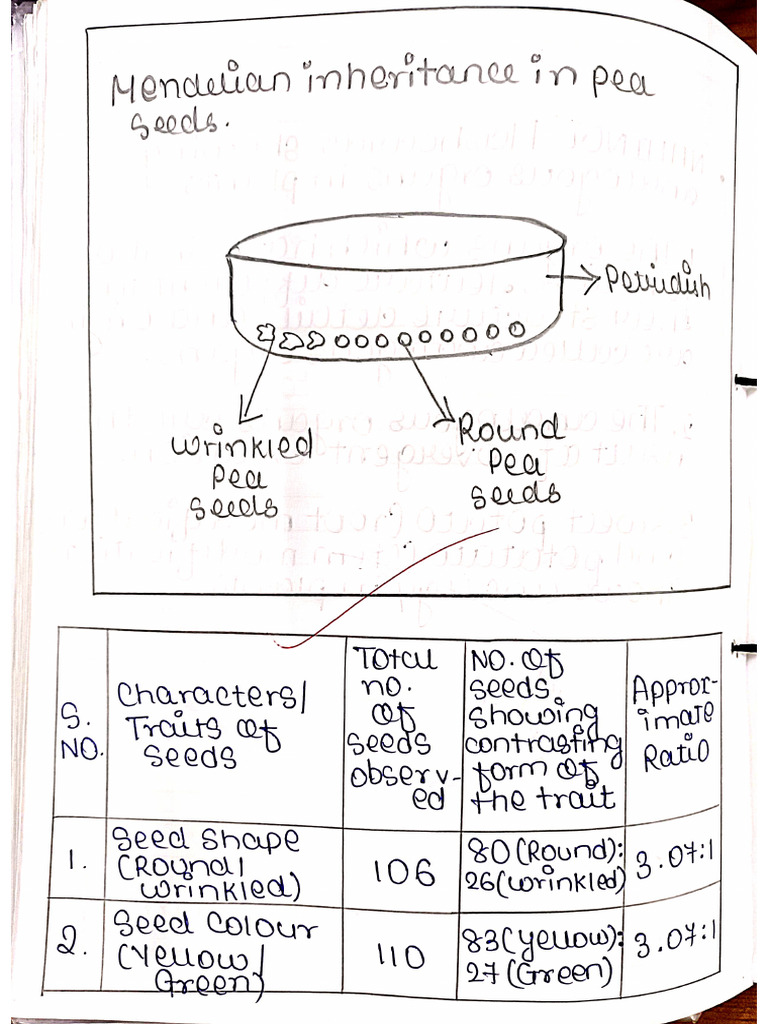 Mendelian inheritance in pea
seeds.
Petridish
Wrinkled
Pea
seeds
Round
Pea
seeds
S.
NO.
Characters/
Traits of
seeds
Total
no.
of
seeds
observ-
ed
NO. of
seeds
showing
contrasting
form of
the trait
Approx-
imate
Ratio
1.
Seed Shape
(Round/
wrinkled)
106
80 (Round):
26 (wrinkled)
3.07:1
2.
Seed Colour
(Yellow/
Green)
110
83 (yellow):
27 (Green)
3.07:1